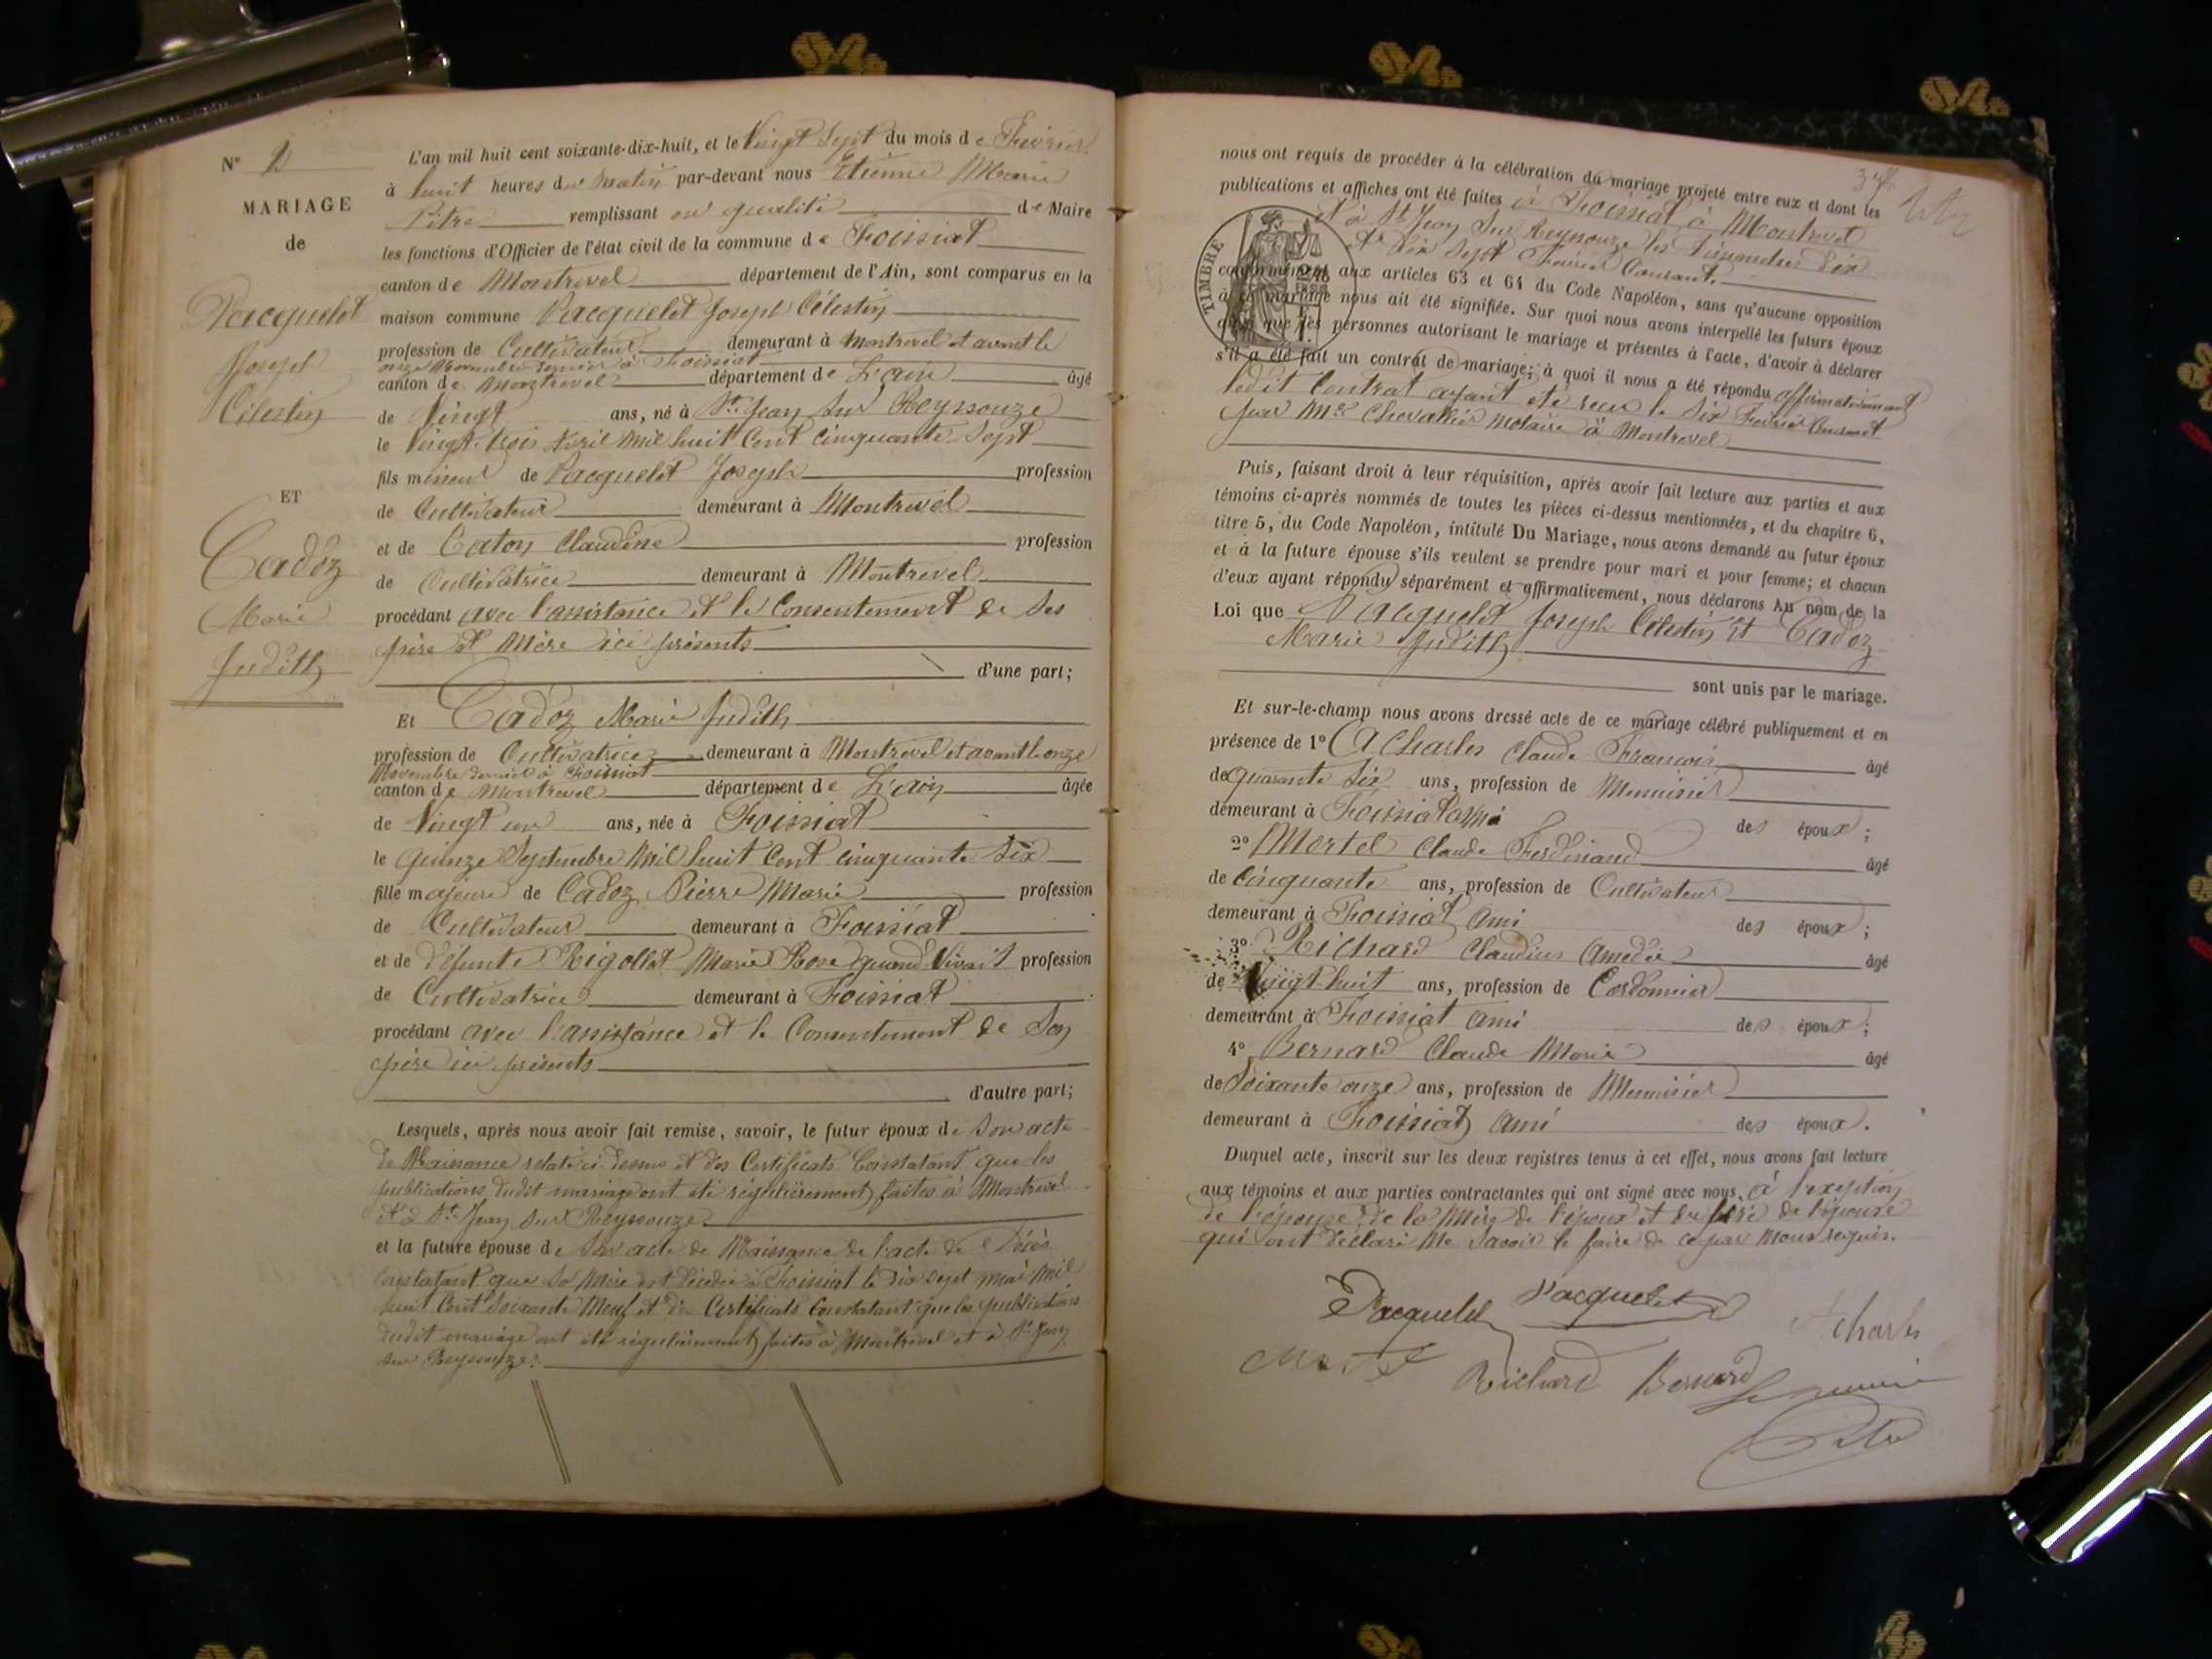 N° 2
MARIAGE
de
Pacquelet
Joseph
Célestin
ET
Cadoz
Marie
Judith
L'an mil huit cent soixante-dix-huit, et le Vingt Sept du mois de Février
à huit heures du Matin par-devant nous Etienne Marie
Pitre remplissant en qualité de Maire
les fonctions d'Officier de l'état civil de la commune de Foissiat
canton de Montrevel département de l'Ain, sont comparus en la
maison commune Pacquelet Joseph Célestin
profession de Cultivateur demeurant à Montrevel et avant le
onze Novembre dernier à Foissiat
canton de Montrevel département de L'ain âgé
de Vingt ans, né à St. Jean Sur Reyssouze
le Vingt-trois Avril Mil huit Cent Cinquante Sept
fils mineur de Pacquelet Joseph profession
de Cultivateur demeurant à Montrevel
et de Caton Claudine profession
de Cultivatrice demeurant à Montrevel
procédant avec l'assistance et le Consentement de Ses
père et Mère ici présents
d'une part;
Et Cadoz Marie Judith
profession de Cultivatrice demeurant à Montrevel et avant le onze
Novembre dernier à Foissiat
canton de Montrevel département de L'ain âgée
de Vingt un ans, née à Foissiat
le Quinze Septembre Mil huit Cent cinquante Six
fille majeure de Cadoz Pierre Marie profession
de Cultivateur demeurant à Foissiat
et de défunte Rigollet Marie Rose quand Vivait profession
de Cultivatrice demeurant à Foissiat
procédant avec l'assistance et le Consentement de Son
père ici présents
d'autre part;
Lesquels, après nous avoir fait remise, savoir, le futur époux de Son acte
de Naissance relaté ci-dessus et des Certificats Constatant que les
publications dudit mariage ont été régulièrement faites à Montrevel
et à St. Jean Sur Reyssouze
et la future épouse de Son acte de Naissance de l'acte de Décès
Constatant que Sa Mère est décédée à Foissiat le dix Sept mai mil
huit Cent Soixante Neuf et des Certificats Constatant que les publications
dudit mariage ont été régulièrement faites à Montrevel et à St. Jean
sur Reyssouze
nous ont requis de procéder à la célébration du mariage projeté entre eux et dont les
publications et affiches ont été faites à Foissiat à Montrevel
et à St Jean Sur Reyssouze les Dimanches dix
et dix Sept Février Courant
TIMBRE
conformément aux articles 63 et 64 du Code Napoléon, sans qu'aucune opposition
à ce mariage nous ait été signifiée. Sur quoi nous avons interpellé les futurs époux
ainsi que les personnes autorisant le mariage et présentes à l'acte, d'avoir à déclarer
s'il a été fait un contrat de mariage; à quoi il nous a été répondu affirmativement
ledit Contrat ayant été reçu le Six Février Courant
par Me. Chevallier Notaire à Montrevel
Puis, faisant droit à leur réquisition, après avoir fait lecture aux parties et aux
témoins ci-après nommés de toutes les pièces ci-dessus mentionnées, et du chapitre 6,
titre 5, du Code Napoléon, intitulé Du Mariage, nous avons demandé au futur époux
et à la future épouse s'ils veulent se prendre pour mari et pour femme; et chacun
d'eux ayant répondu séparément et affirmativement, nous déclarons Au nom de la
Loi que Pacquelet Joseph Célestin et Cadoz
Marie Judith
sont unis par le mariage.
Et sur-le-champ nous avons dressé acte de ce mariage célébré publiquement et en
présence de 1° Acharles Claude François âgé
de quarante Six ans, profession de Menuisier
demeurant à Foissiat ami des époux;
2° Mortel Claude Ferdinand âgé
de Cinquante ans, profession de Cultivateur
demeurant à Foissiat ami des époux;
3° Richard Claudius Amédée âgé
de Vingt-huit ans, profession de Cordonnier
demeurant à Foissiat ami des époux;
4° Bernard Claude Marie âgé
de Soixante onze ans, profession de Menuisier
demeurant à Foissiat ami des époux.
Duquel acte, inscrit sur les deux registres tenus à cet effet, nous avons fait lecture
aux témoins et aux parties contractantes qui ont signé avec nous, à l'exception
de l'épouse, de la Mère de l'époux et du père de l'épouse
qui ont déclaré Ne Savoir le faire de ce par Nous requis.
Pacquelet Pacquelet
Acharles
Richard Bernard
Le maire
Pitre